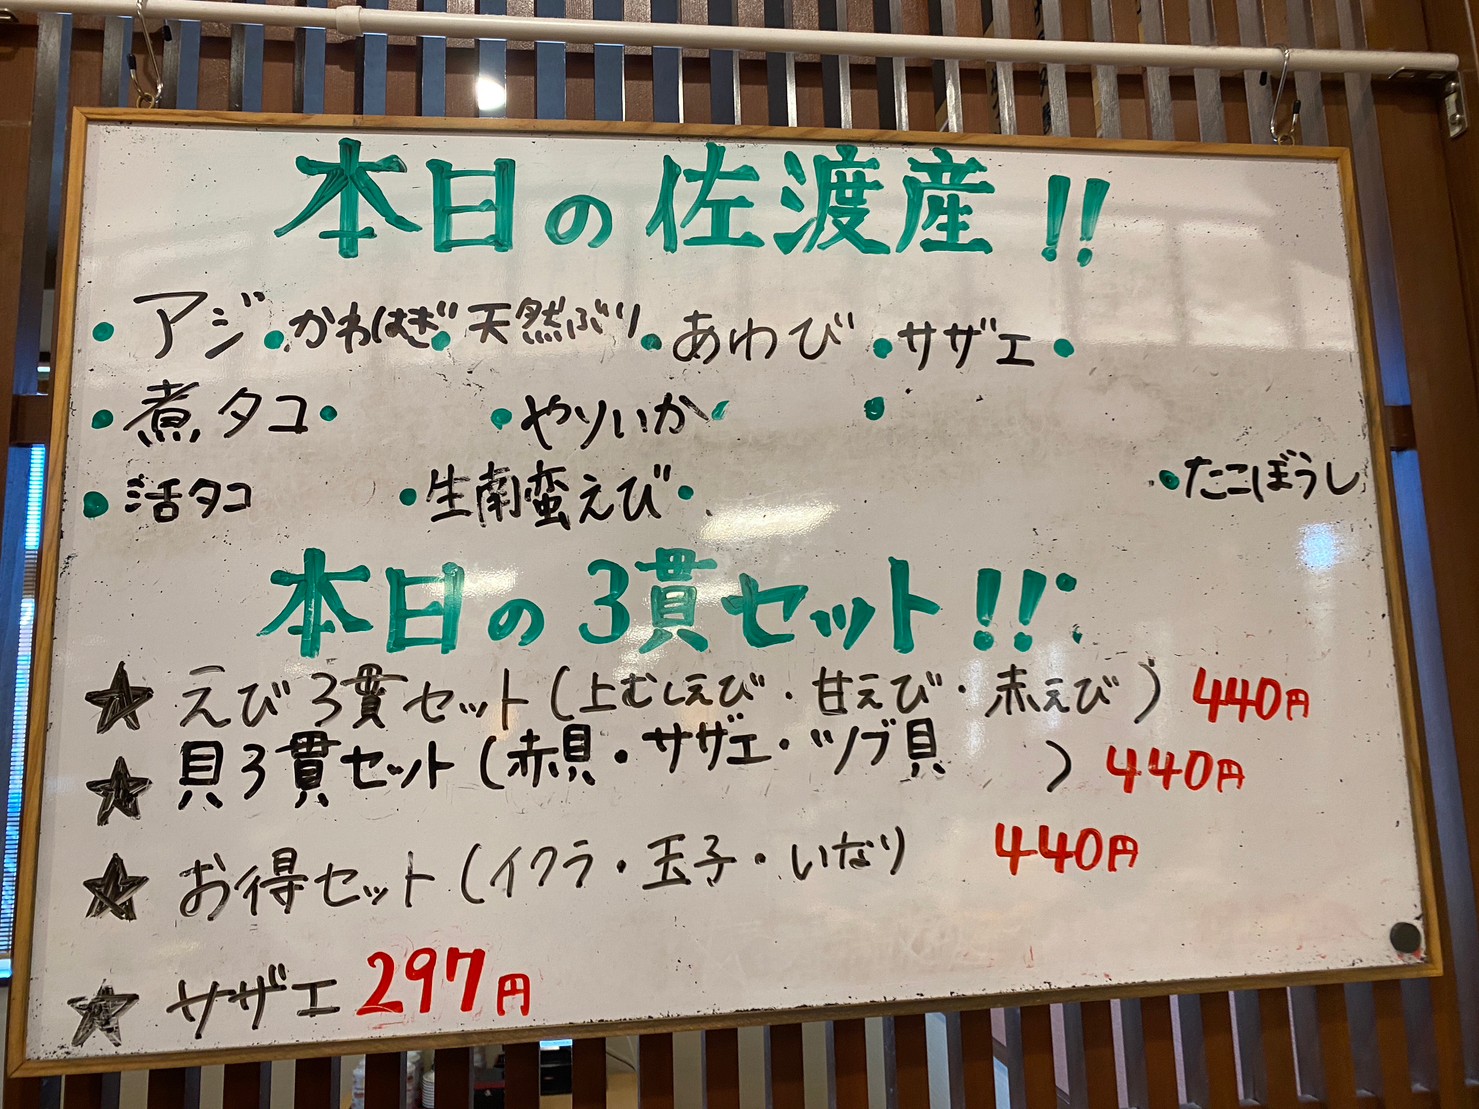 本日の佐渡産!!
・アジ・かわはぎ・天然ぶり・あわび・サザエ・
・煮タコ・ ・やりいか・ ・
・活タコ ・生南蛮えび・ ・たこぼうし
本日の3貫セット!!
★えび3貫セット(上むしえび・甘えび・赤えび) 440円
★貝3貫セット(赤貝・サザエ・ツブ貝 ) 440円
★お得セット(イクラ・玉子・いなり 440円
★サザエ 297円